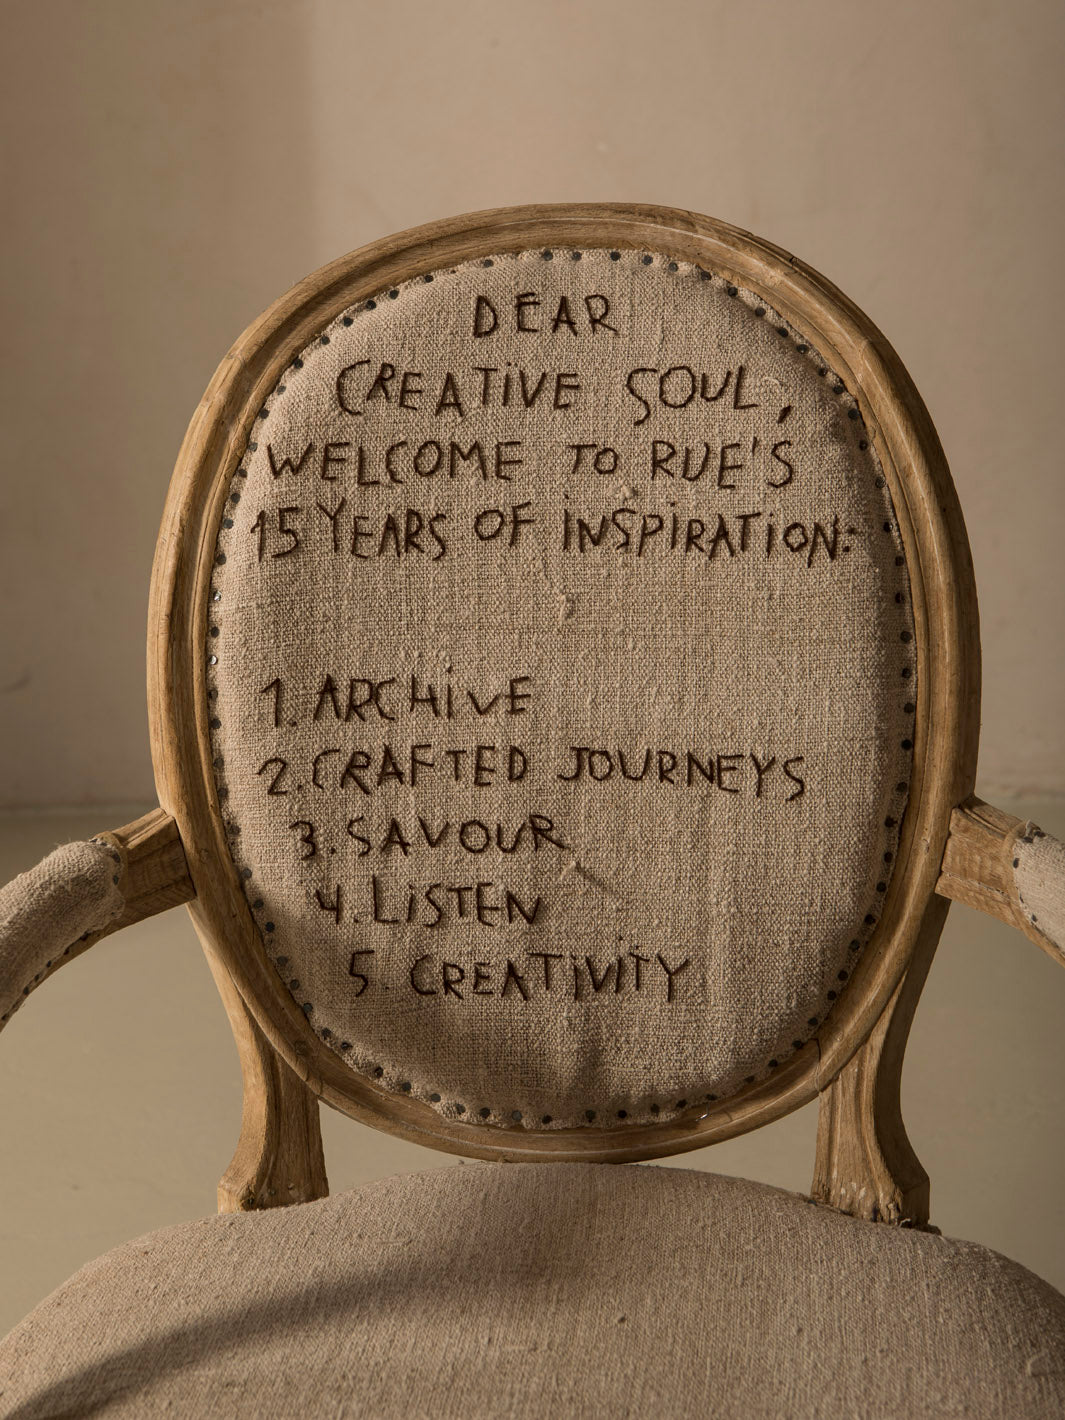 DEAR
CREATIVE SOUL,
WELCOME TO RUE'S
15 YEARS OF INSPIRATION:
1. ARCHIVE
2. CRAFTED JOURNEYS
3. SAVOUR
4. LISTEN
5. CREATIVITY